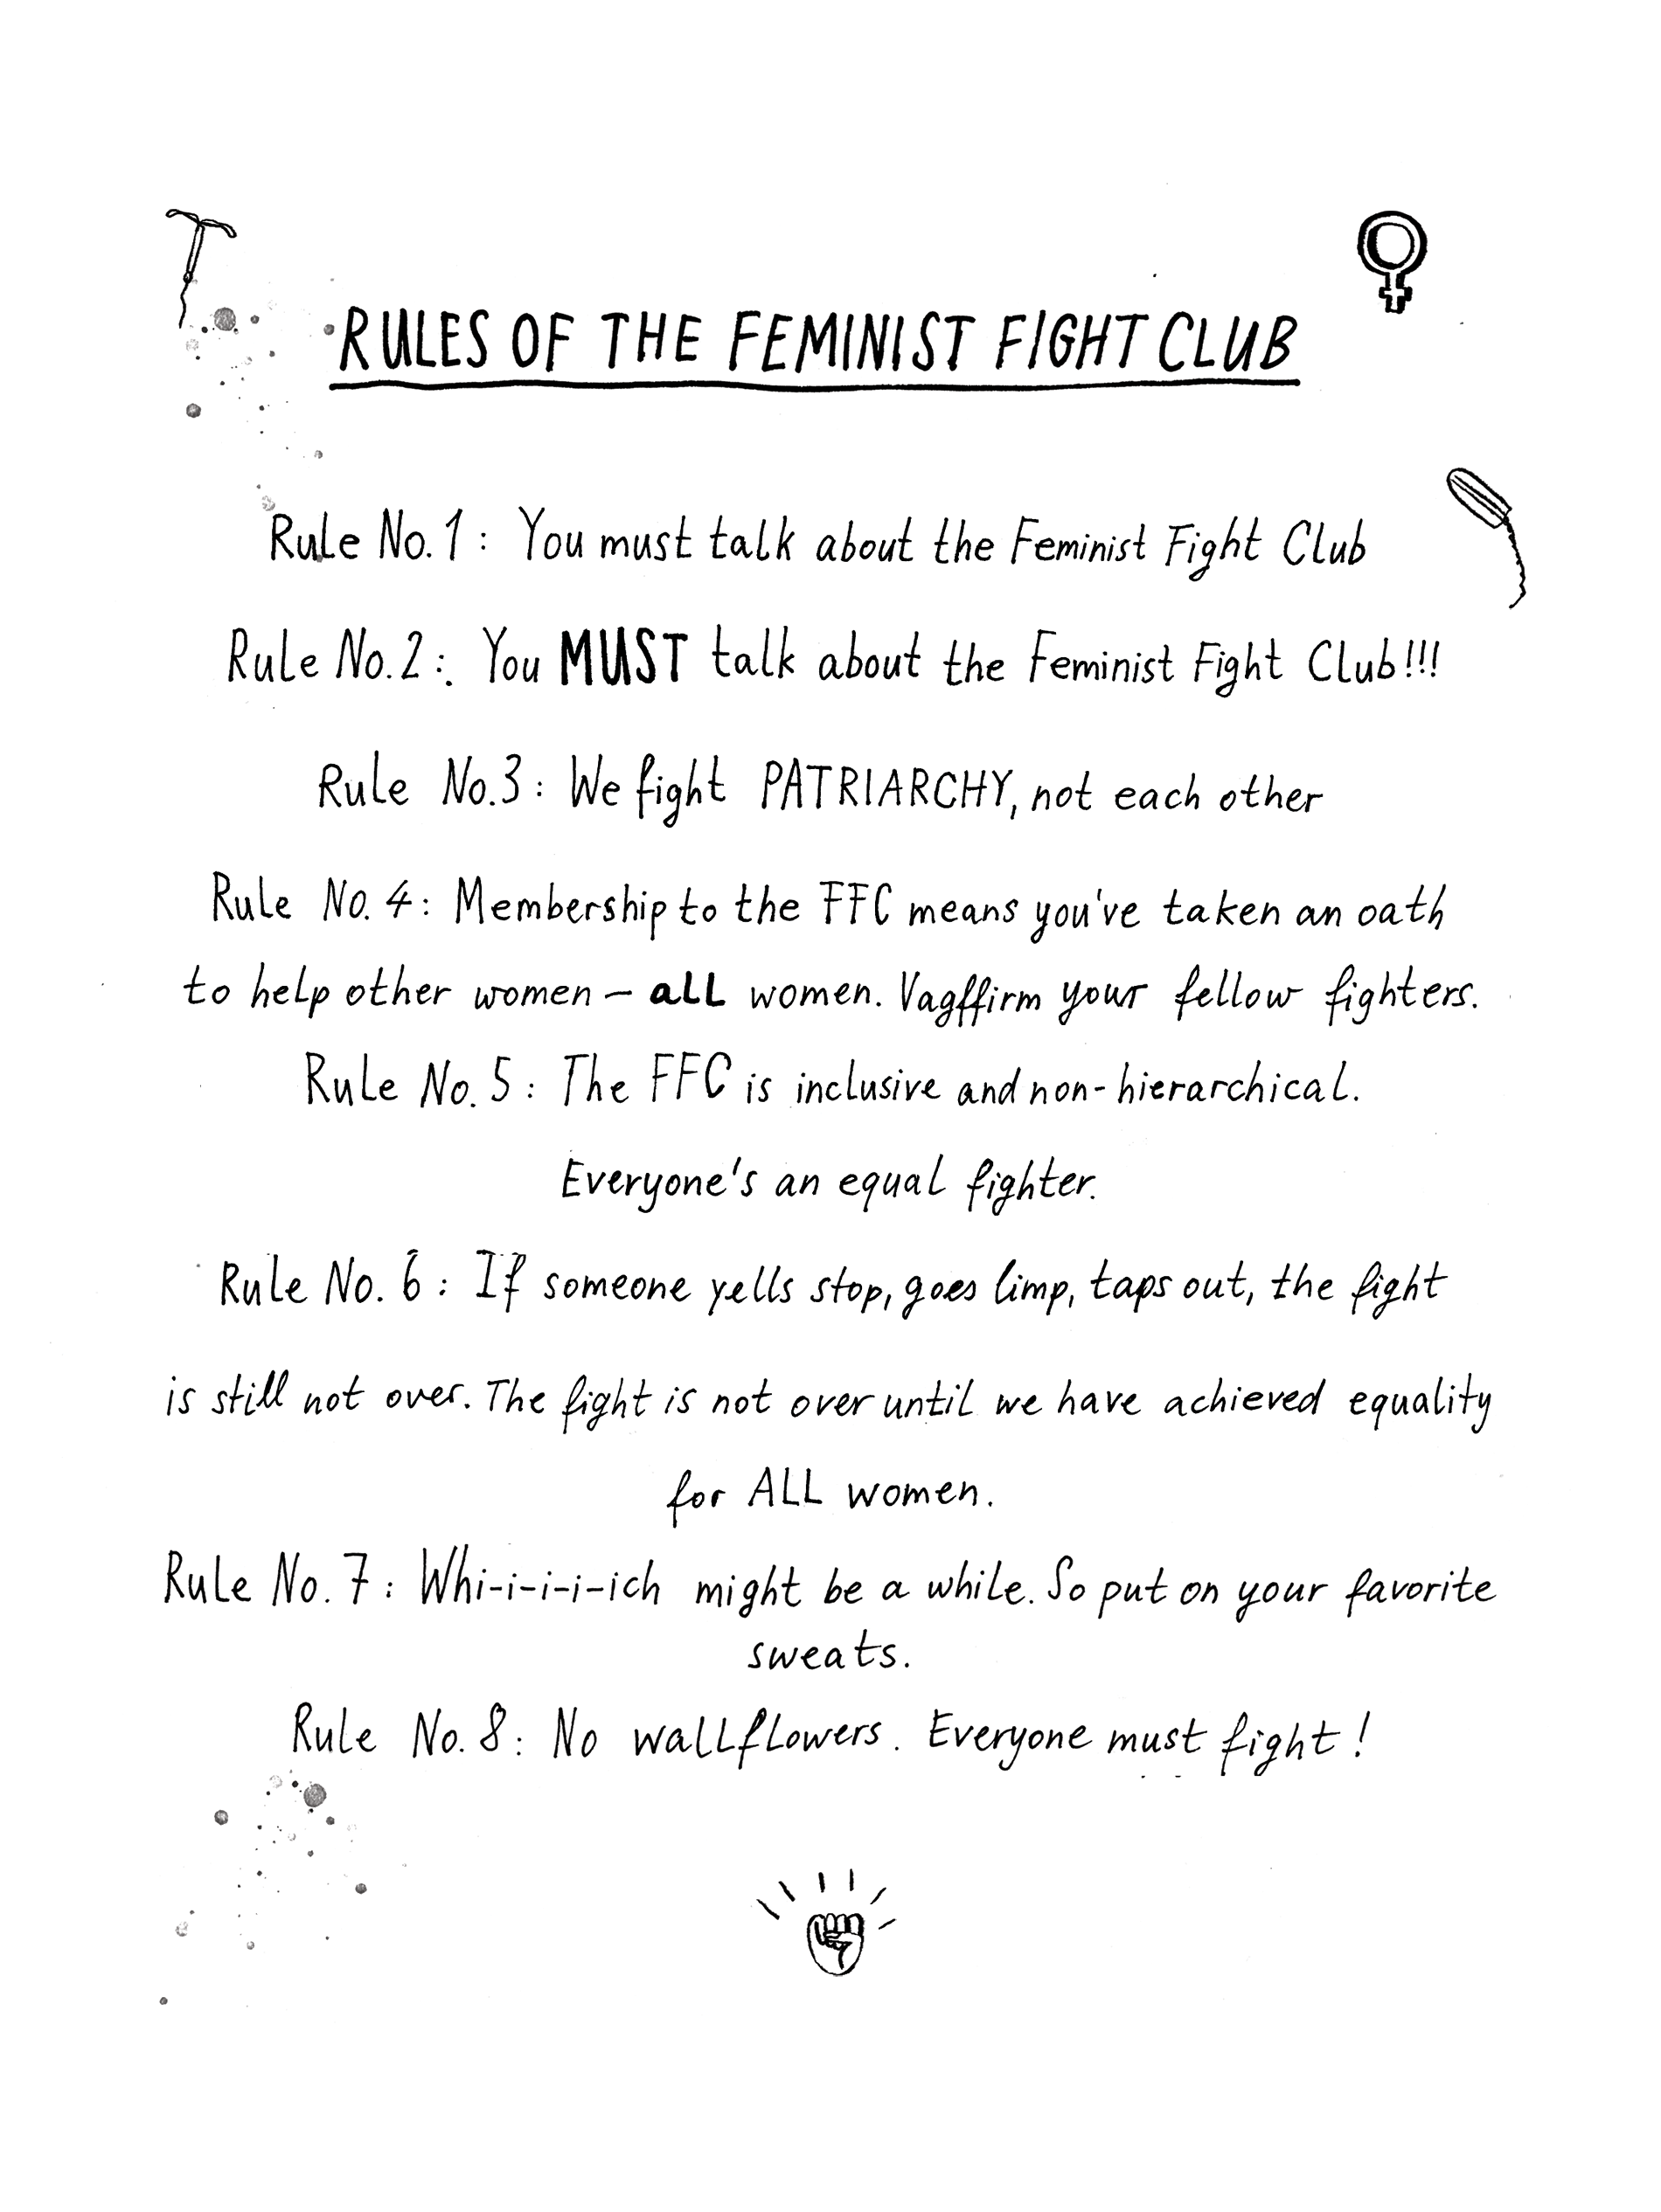 RULES OF THE FEMINIST FIGHT CLUB
Rule No. 1: You must talk about the Feminist Fight Club
Rule No. 2: You MUST talk about the Feminist Fight Club!!!
Rule No. 3: We fight PATRIARCHY, not each other
Rule No. 4: Membership to the FFC means you've taken an oath
to help other women – aLL women. Vagffirm your fellow fighters.
Rule No. 5: The FFC is inclusive and non-hierarchical.
Everyone's an equal fighter.
Rule No. 6: If someone yells stop, goes limp, taps out, the fight
is still not over. The fight is not over until we have achieved equality
for ALL women.
Rule No. 7: Whi-i-i-i-ich might be a while. So put on your favorite
sweats.
Rule No. 8: No wallflowers. Everyone must fight!